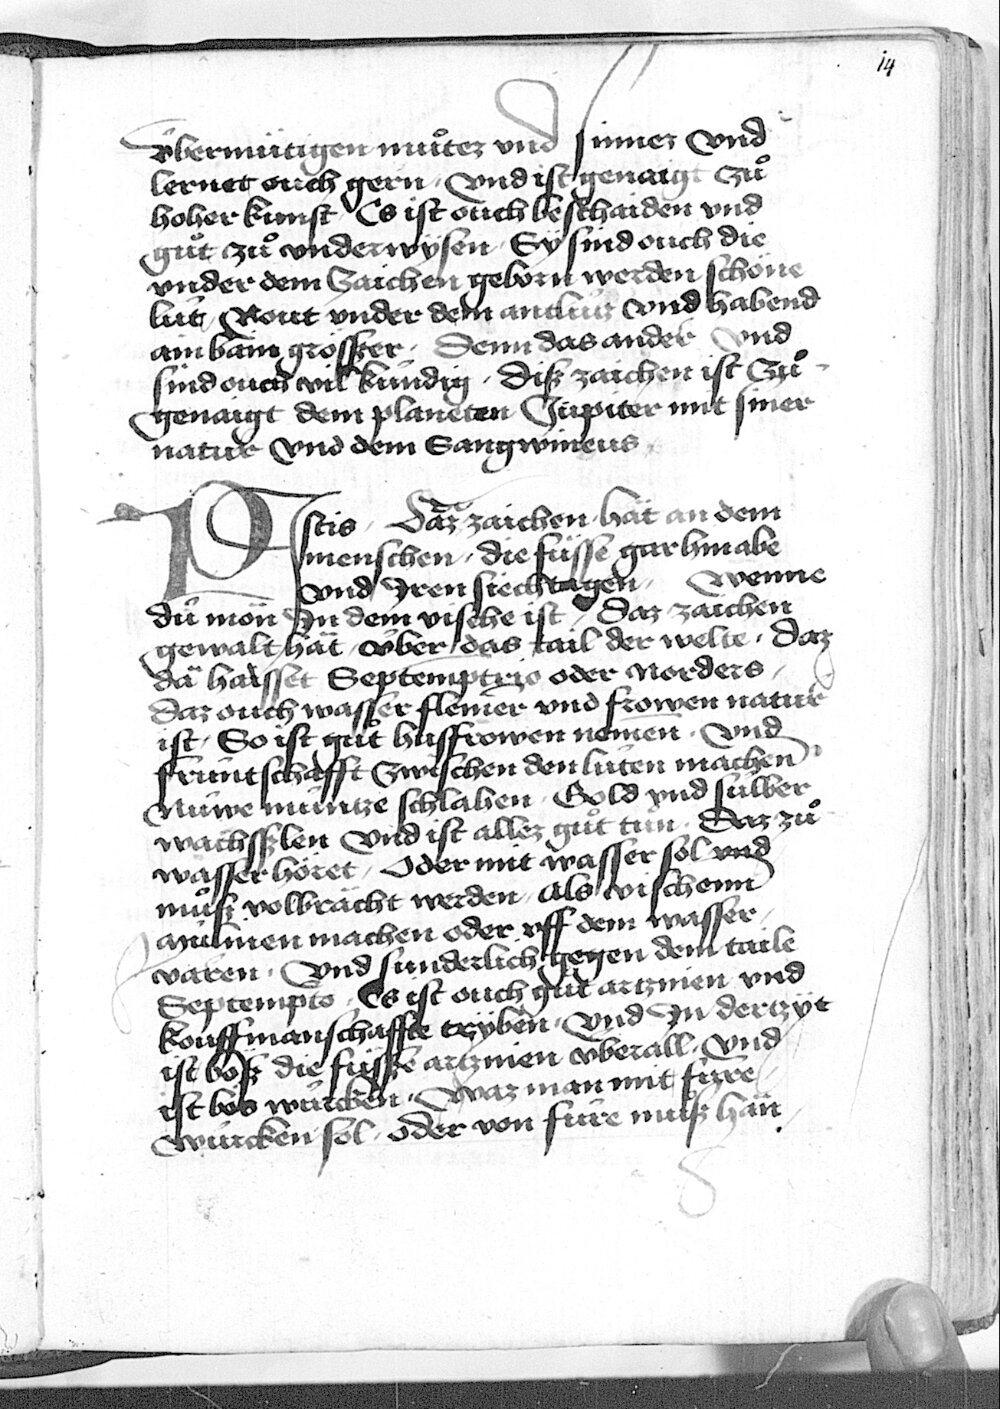 14
v̈bermütigen muͦtez vnd sinnez Vnd
lernet ouch gern · Vnd ist genaigt Zuͦ
hoher kunst · Es ist ouch beschaiden vnd
guͦt zuͦ vnderwysen · Sÿ sind ouch die
vnder dem Zaichen geborn werden schöne
lüt · Rout vnder dem antlütz Vnd habend
ain bain grösser · Denn das ander Vnd
sind ouch vil kündig · Diß zaichen ist Zuͦ
genaigt dem planeten Jupiter mit siner
natur Vnd dem Sangwineus ·
PIscis · Daz zaichen hät an dem
menschen · die füsse gar hin abe
Vnd Jren siechtagen · Wenne
du mön Jn dem vische ist · Daz zaichen
gewalt hät v̈ber das tail der welte · Daz
dä haisset Septemptrio oder Norders ·
Daz ouch wasser flemer vnd frowen natur
ist · So ist guͦt husfrowen nemen · Vnd
früntschafft Zwischen den lüten machen
Nüwe müntze schlahen · Gold vnd silber
wächsslen Vnd ist allez guͦt tun · Daz zuͦ
wasser höret · Oder mit wasser sol vnd
muͦß volbrächt werden · Als vischenn
Mulinen machen oder vff dem wasser
varen · Vnd sunderlich gegen dem taile
Septempto · Es ist ouch guͦt artznien vnd
kouffmanschaffte tryben · Vnd Jn der tzyt
ist böß die füsse artznien v̈berall · Vnd
ist bös würcken · Waz man mit füre
würcken sol · oder von füre muß hän ·